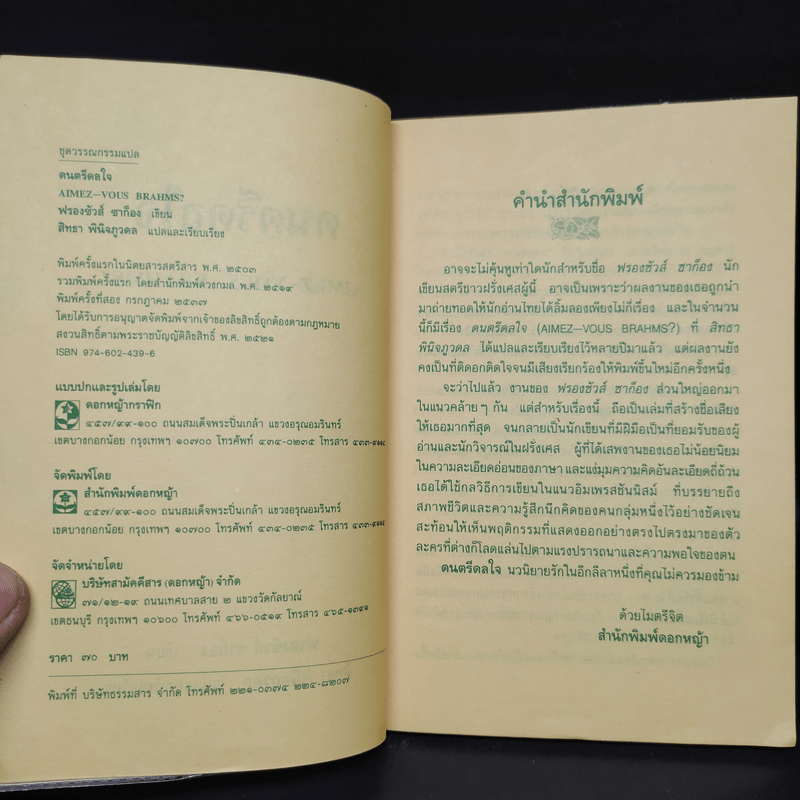 ชุดวรรณกรรมแปล
ดนตรีดลใจ
AIMEZ—VOUS BRAHMS?
ฟรองซัวส์ ซาก็อง เขียน
สิทธา พินิจภูวดล แปลและเรียบเรียง
พิมพ์ครั้งแรกในนิตยสารสตรีสาร พ.ศ. ๒๕๐๓
รวมพิมพ์ครั้งแรก โดยสำนักพิมพ์ดวงกมล พ.ศ. ๒๕๑๙
พิมพ์ครั้งที่สอง กรกฎาคม ๒๕๓๗
โดยได้รับการอนุญาตจัดพิมพ์จากเจ้าของลิขสิทธิ์ถูกต้องตามกฎหมาย
สงวนสิทธิ์ตามพระราชบัญญัติลิขสิทธิ์ พ.ศ. ๒๕๒๑
ISBN 974-602-439-6
แบบปกและรูปเล่มโดย
ดอกหญ้ากราฟิก
๔๕๗/๙๙-๑๐๐ ถนนสมเด็จพระปิ่นเกล้า แขวงอรุณอมรินทร์
เขตบางกอกน้อย กรุงเทพฯ ๑๐๗๐๐ โทรศัพท์ ๔๓๔-๐๒๓๕ โทรสาร
จัดพิมพ์โดย
สำนักพิมพ์ดอกหญ้า
๔๕๗/๙๙-๑๐๐ ถนนสมเด็จพระปิ่นเกล้า แขวงอรุณอมรินทร์
เขตบางกอกน้อย กรุงเทพฯ ๑๐๗๐๐ โทรศัพท์ ๔๓๔-๐๒๓๕ โทรสาร
จัดจำหน่ายโดย
บริษัทสามัคคีสาร (ดอกหญ้า) จำกัด
๗๑/๑๒-๑๙ ถนนเทศบาลสาย ๒ แขวงวัดกัลยาณ์
เขตธนบุรี กรุงเทพฯ ๑๐๖๐๐ โทรศัพท์ ๔๖๖-๐๕๑๙ โทรสาร ๔๖๕-๑๓๙๑
ราคา ๗๐ บาท
พิมพ์ที่ บริษัทธรรมสาร จำกัด โทรศัพท์ ๒๒๑-๐๓๗๔ ๒๒๔-๘๒๐๗
คำนำสำนักพิมพ์
อาจจะไม่คุ้นหูเท่าใดนักสำหรับชื่อ ฟรองซัวส์ ซาก็อง นัก
เขียนสตรีชาวฝรั่งเศสผู้นี้ อาจเป็นเพราะว่าผลงานของเธอถูกนำ
มาถ่ายทอดให้นักอ่านไทยได้ลิ้มลองเพียงไม่กี่เรื่อง และในจำนวน
นี้ก็มีเรื่อง ดนตรีดลใจ (AIMEZ—VOUS BRAHMS?) ที่ สิทธา
พินิจภูวดล ได้แปลและเรียบเรียงไว้หลายปีมาแล้ว แต่ผลงานยัง
คงเป็นที่ติดอกติดใจจนมีเสียงเรียกร้องให้พิมพ์ขึ้นใหม่อีกครั้งหนึ่ง
จะว่าไปแล้ว งานของ ฟรองซัวส์ ซาก็อง ส่วนใหญ่ออกมา
ในแนวคล้าย ๆ กัน แต่สำหรับเรื่องนี้ ถือเป็นเล่มที่สร้างชื่อเสียง
ให้เธอมากที่สุด จนกลายเป็นนักเขียนที่มีฝีมือเป็นที่ยอมรับของผู้
อ่านและนักวิจารณ์ในฝรั่งเศส ผู้ที่ได้เสพงานของเธอไม่น้อยนิยม
ในความละเอียดอ่อนของภาษา และแง่มุมความคิดอันละเอียดถี่ถ้วน
เธอได้ใช้กลวิธีการเขียนในแนวอิมเพรสชันนิสม์ ที่บรรยายถึง
สภาพชีวิตและความรู้สึกนึกคิดของคนกลุ่มหนึ่งไว้อย่างชัดเจน
สะท้อนให้เห็นพฤติกรรมที่แสดงออกอย่างตรงไปตรงมาของตัว
ละครที่ต่างก็โลดแล่นไปตามแรงปรารถนาและความพอใจของตน
ดนตรีดลใจ นวนิยายรักในอีกลีลาหนึ่งที่คุณไม่ควรมองข้าม
ด้วยไมตรีจิต
สำนักพิมพ์ดอกหญ้า